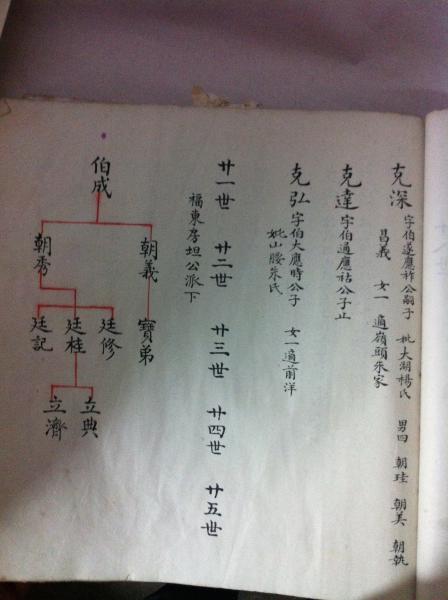 克深 字伯遂應祚公嗣子 妣大湖楊氏 男四 朝珪 朝美 朝執
昌義 女一 適嶺頭朱家
克達 字伯通應祜公子止
克弘 字伯大應時公子 女一適前洋
妣山腰朱氏
廿一世 廿二世 廿三世 廿四世 廿五世
福東房坦公派下
伯成
朝義 寶弟
朝秀
廷修
廷桂
廷記
立典
立濟